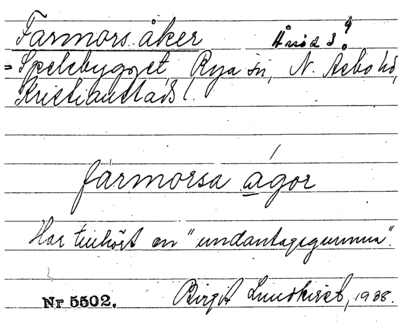 Farmors åker
= Spelebygget Rya sn, N. Åsbo hd,
Kristianstads l.
fármorsa ágor
Har tillhört en "undantagsgumma".
Nr 5502. Birgit Lundkvist, 1938.